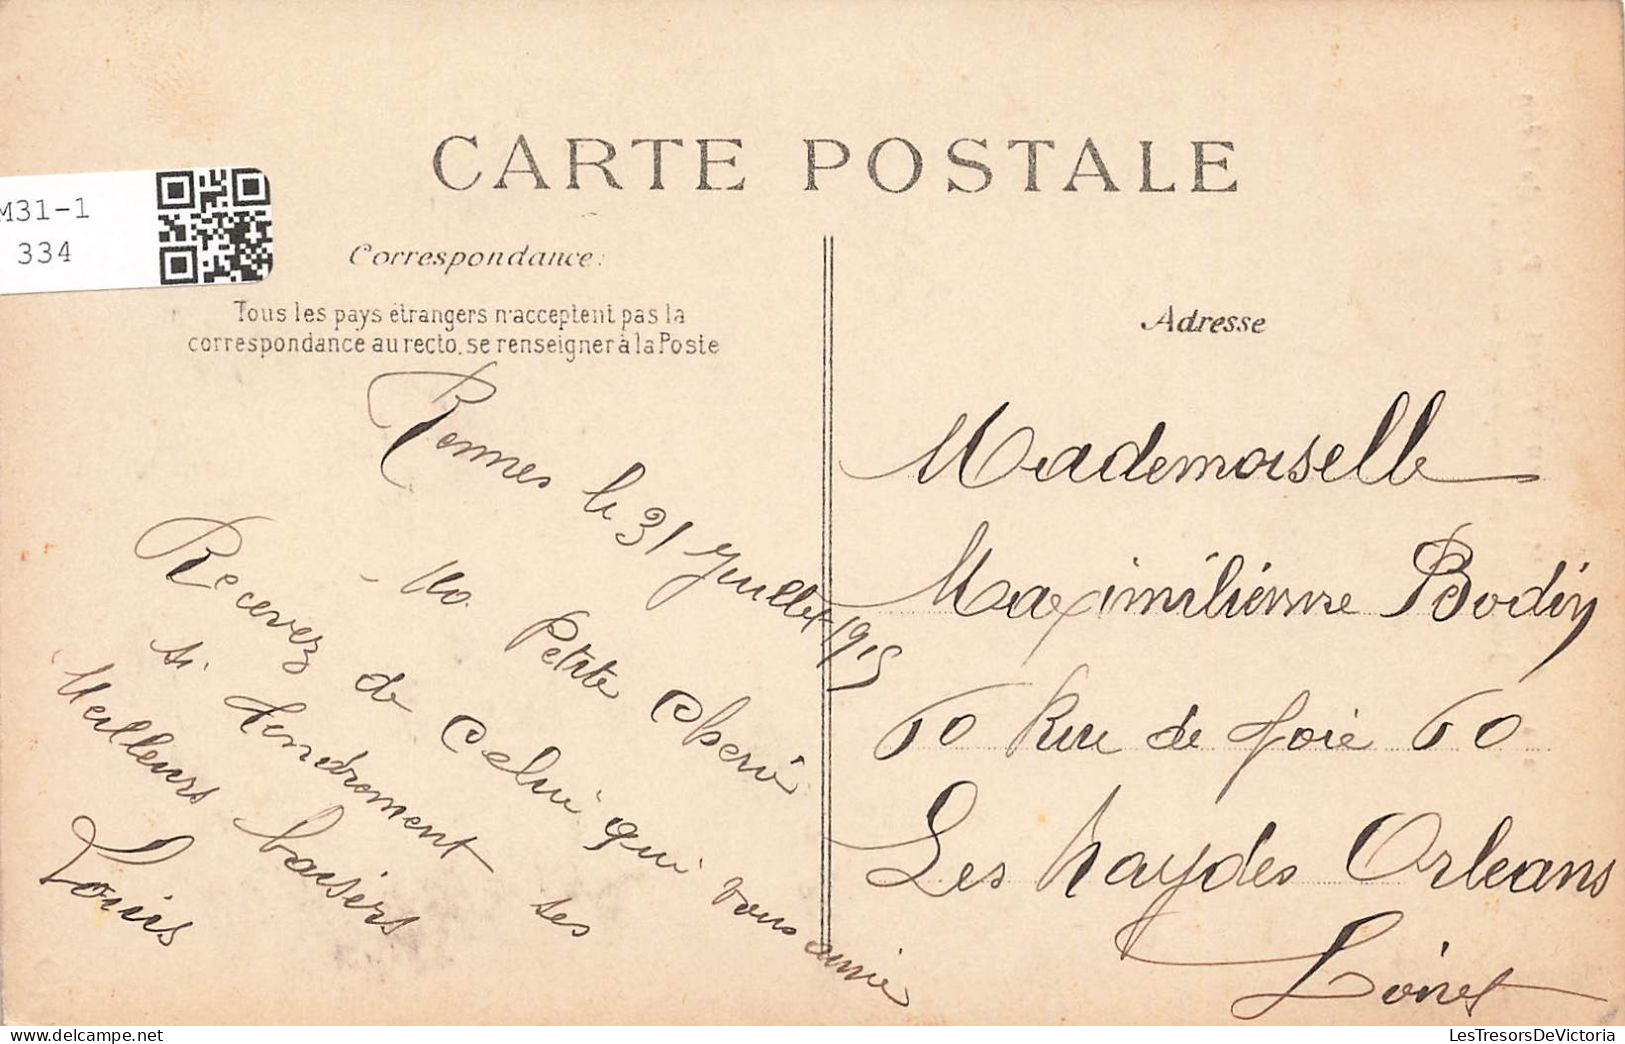 CARTE POSTALE
M31-1
334
Correspondance:
Tous les pays étrangers n'acceptent pas la
correspondance au recto, se renseigner à la Poste
Rennes le 31 Juillet 1915
Ma Petite Cheri
Recevez de Celui qui vous aime
si tendrement ses
Meilleurs baisers
Louis
Adresse
Mademoiselle
Maximilienne Bodin
60 Rue de Joie 60
Les haydes Orleans
Loiret
LesTresorsDeVictoria